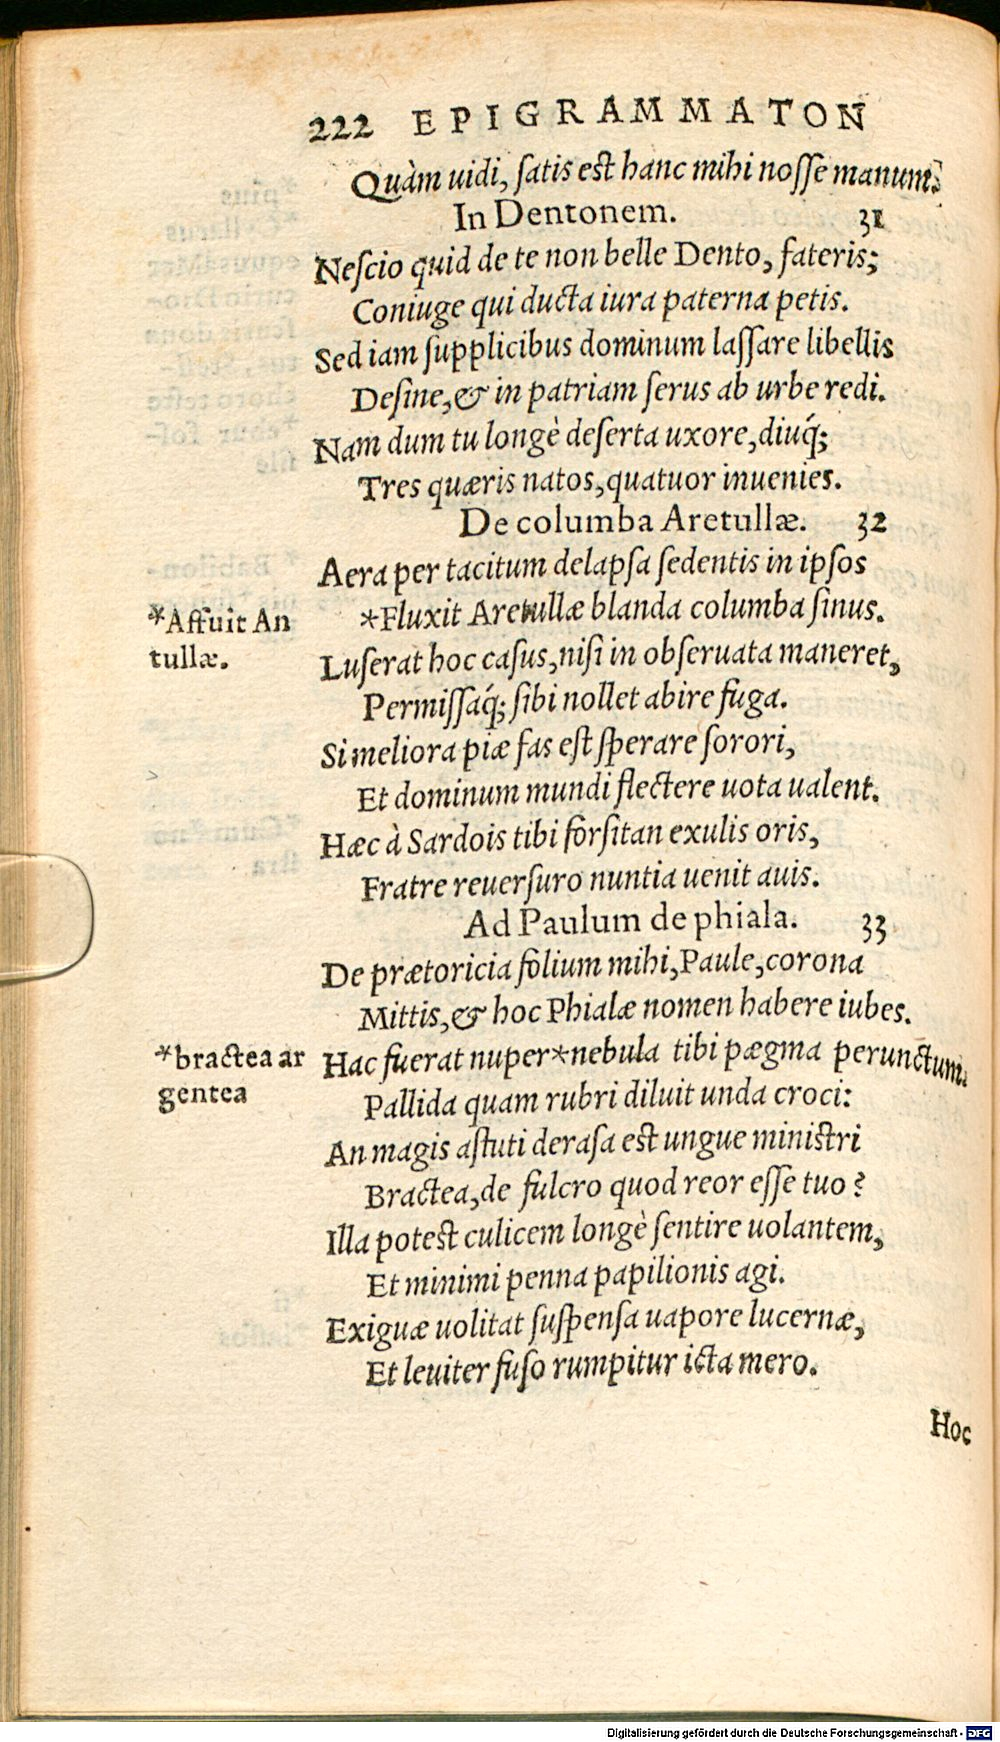 222 EPIGRAMMATON
Quàm uidi, ſatis eſt hanc mihi noſſe manum?
In Dentonem. 31
Neſcio quid de te non belle Dento, fateris;
Coniuge qui ducta iura paterna petis.
Sed iam ſupplicibus dominum laſſare libellis
Deſine, & in patriam ſerus ab urbe redi.
Nam dum tu longè deſerta uxore, diuq́;
Tres quæris natos, quatuor inuenies.
De columba Aretullæ. 32
Aera per tacitum delapſa ſedentis in ipſos
*Fluxit Aretullæ blanda columba ſinus.
*Affuit An
tullæ.
Luſerat hoc caſus, niſi in obſeruata maneret,
Permiſſaq́; ſibi nollet abire fuga.
Si meliora piæ fas eſt ſperare ſorori,
Et dominum mundi flectere uota ualent.
Hæc à Sardois tibi forſitan exulis oris,
Fratre reuerſuro nuntia uenit auis.
Ad Paulum de phiala. 33
De prætoricia folium mihi, Paule, corona
Mittis, & hoc Phialæ nomen habere iubes.
*bractea ar
gentea
Hac fuerat nuper*nebula tibi pægma perunctum,
Pallida quam rubri diluit unda croci:
An magis aſtuti deraſa est ungue miniſtri
Bractea, de fulcro quod reor eſſe tuo?
Illa poteſt culicem longè ſentire uolantem,
Et minimi penna papilionis agi.
Exiguæ uolitat ſuſpenſa uapore lucernæ,
Et leuiter fuſo rumpitur icta mero.
Hoc
Digitalisierung gefördert durch die Deutsche Forschungsgemeinschaft - DFG